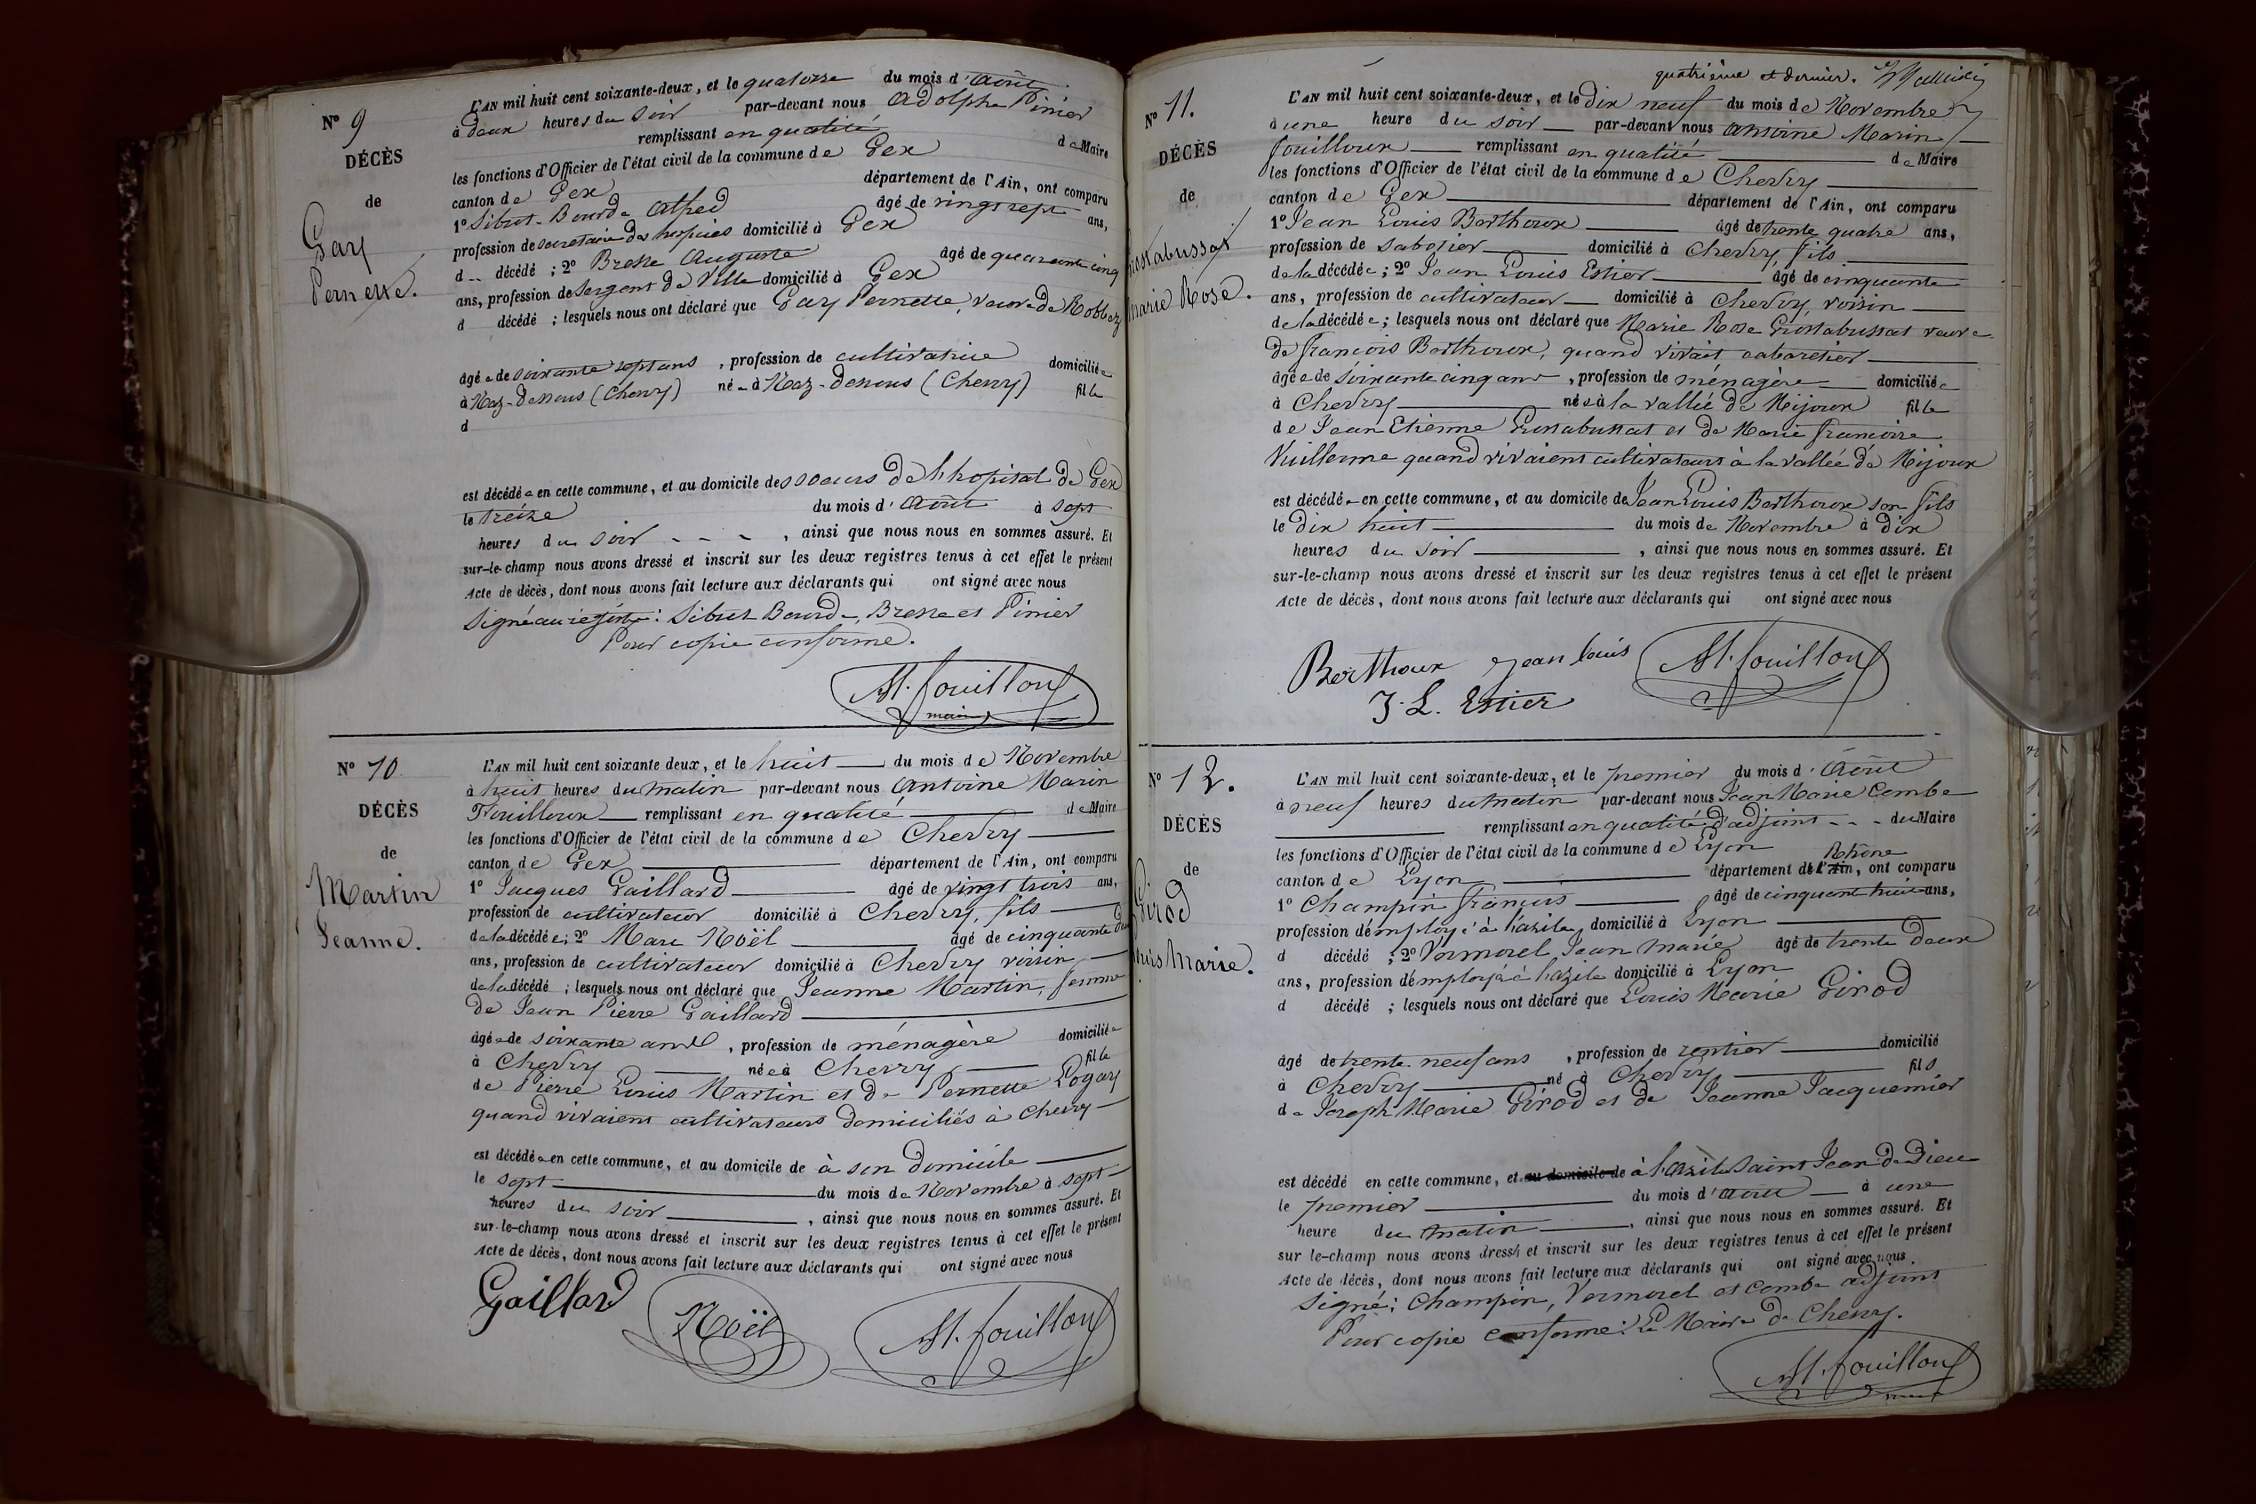 N° 9
DÉCÈS
de
Gay
Pernette.
L'AN mil huit cent soixante-deux, et le quatorze du mois d'Août
à deux heures du soir par-devant nous Adolphe Pinier
remplissant en qualité de Maire
les fonctions d'Officier de l'état civil de la commune de Gex
canton de Gex département de l'Ain, ont comparu
1° Sibut-Bourde Alfred âgé de vingt sept ans,
profession de secrétaire des hospices domicilié à Gex
d décédé ; 2° Bresse Auguste âgé de quarante cinq
ans, profession de Sergent de Ville domicilié à Gex
d décédé ; lesquels nous ont déclaré que Gay Pernette, veuve de Robbez
âgée de soixante sept ans , profession de cultivatrice domiciliée
à Naz-Dessous (Chevry) né à Naz-Dessous (Chevry) fille
d
est décédée en cette commune, et au domicile des soeurs de l'hopital de Gex
le treize du mois d'Août à sept
heures du soir - - - , ainsi que nous nous en sommes assuré. Et
sur-le-champ nous avons dressé et inscrit sur les deux registres tenus à cet effet le présent
Acte de décès, dont nous avons fait lecture aux déclarants qui ont signé avec nous
Signé au registre : Sibut Bourde, Bresse et Pinier
Pour copie conforme.
M. fouilloux
maire
N° 10
DÉCÈS
de
Martin
Jeanne.
L'AN mil huit cent soixante deux, et le huit du mois de Novembre
à huit heures du matin par-devant nous Antoine Marin
Fouilloux remplissant en qualité de Maire
les fonctions d'Officier de l'état civil de la commune de Chevry
canton de Gex département de l'Ain, ont comparu
1° Jacques Gaillard âgé de vingt trois ans,
profession de cultivateur domicilié à Chevry, fils
de la décédée ; 2° Marc Noël âgé de cinquante
ans, profession de cultivateur domicilié à Chevry voisin
de la décédé ; lesquels nous ont déclaré que Jeanne Martin, femme
de Jean Pierre Gaillard
âgée de soixante ans , profession de ménagère domiciliée
à Chevry née à Chevry fille
de Pierre Louis Martin et de Pernette Logay
quand vivaient cultivateurs domiciliés à Chevry
est décédée en cette commune, et au domicile de à son domicile
le sept du mois de Novembre à sept
heures du soir , ainsi que nous nous en sommes assuré. Et
sur-le-champ nous avons dressé et inscrit sur les deux registres tenus à cet effet le présent
Acte de décès, dont nous avons fait lecture aux déclarants qui ont signé avec nous
Gaillard Noël M. fouilloux
quatrième et dernier.
N° 11.
DÉCÈS
de
Grostabussat
Marie Rose.
L'AN mil huit cent soixante-deux, et le dix neuf du mois de Novembre
à une heure du soir par-devant nous Antoine Marin
fouilloux remplissant en qualité de Maire
les fonctions d'Officier de l'état civil de la commune de Chevry
canton de Gex département de l'Ain, ont comparu
1° Jean Louis Berthoux âgé de trente quatre ans,
profession de sabotier domicilié à Chevry, fils
de la décédée ; 2° Jean Louis Estier âgé de cinquante
ans, profession de cultivateur domicilié à Chevry, voisin
de la décédée ; lesquels nous ont déclaré que Marie Rose Grostabussat veuve
de françois Berthoux, quand vivait cabaretier
âgée de soixante cinq ans , profession de ménagère domiciliée
à Chevry née à la vallée de Mijoux fille
de Jean Etienne Grostabussat et de Marie françoise
Vuillerme quand vivaient cultivateurs à la vallée de Mijoux
est décédée en cette commune, et au domicile de Jean Louis Berthoux son fils
le dix huit du mois de Novembre à dix
heures du soir , ainsi que nous nous en sommes assuré. Et
sur-le-champ nous avons dressé et inscrit sur les deux registres tenus à cet effet le présent
Acte de décès, dont nous avons fait lecture aux déclarants qui ont signé avec nous
Berthoux jean louis M. fouilloux
J. L. Estier
N° 12.
DÉCÈS
de
Girod
Louis Marie.
L'AN mil huit cent soixante-deux, et le premier du mois d'Août
à neuf heures du matin par-devant nous Jean Marie Combe
remplissant en qualité d'adjoint - - - du Maire
les fonctions d'Officier de l'état civil de la commune de Lyon
Rhône
canton de Lyon département de l'Ain, ont comparu
1° Champin françois âgé de cinquante huit ans,
profession d'employé à l'asile domicilié à Lyon
d décédé ; 2° Vormorel Jean Marie âgé de trente deux
ans, profession d'employé à l'asile domicilié à Lyon
d décédé ; lesquels nous ont déclaré que Louis Marie Girod
âgé de trente neuf ans , profession de rentier domicilié
à Chevry né à Chevry fils
de Joseph Marie Girod et de Jeanne Jacquemier
est décédé en cette commune, et au domicile de à l'asile Saint Jean de Dieu
le premier du mois d'août à une
heure du matin , ainsi que nous nous en sommes assuré. Et
sur le-champ nous avons dressé et inscrit sur les deux registres tenus à cet effet le présent
Acte de décès, dont nous avons fait lecture aux déclarants qui ont signé avec nous.
Signé : Champin, Vormorel et Combe adjoint
Pour copie conforme : Le Maire de Chevry.
M. fouilloux